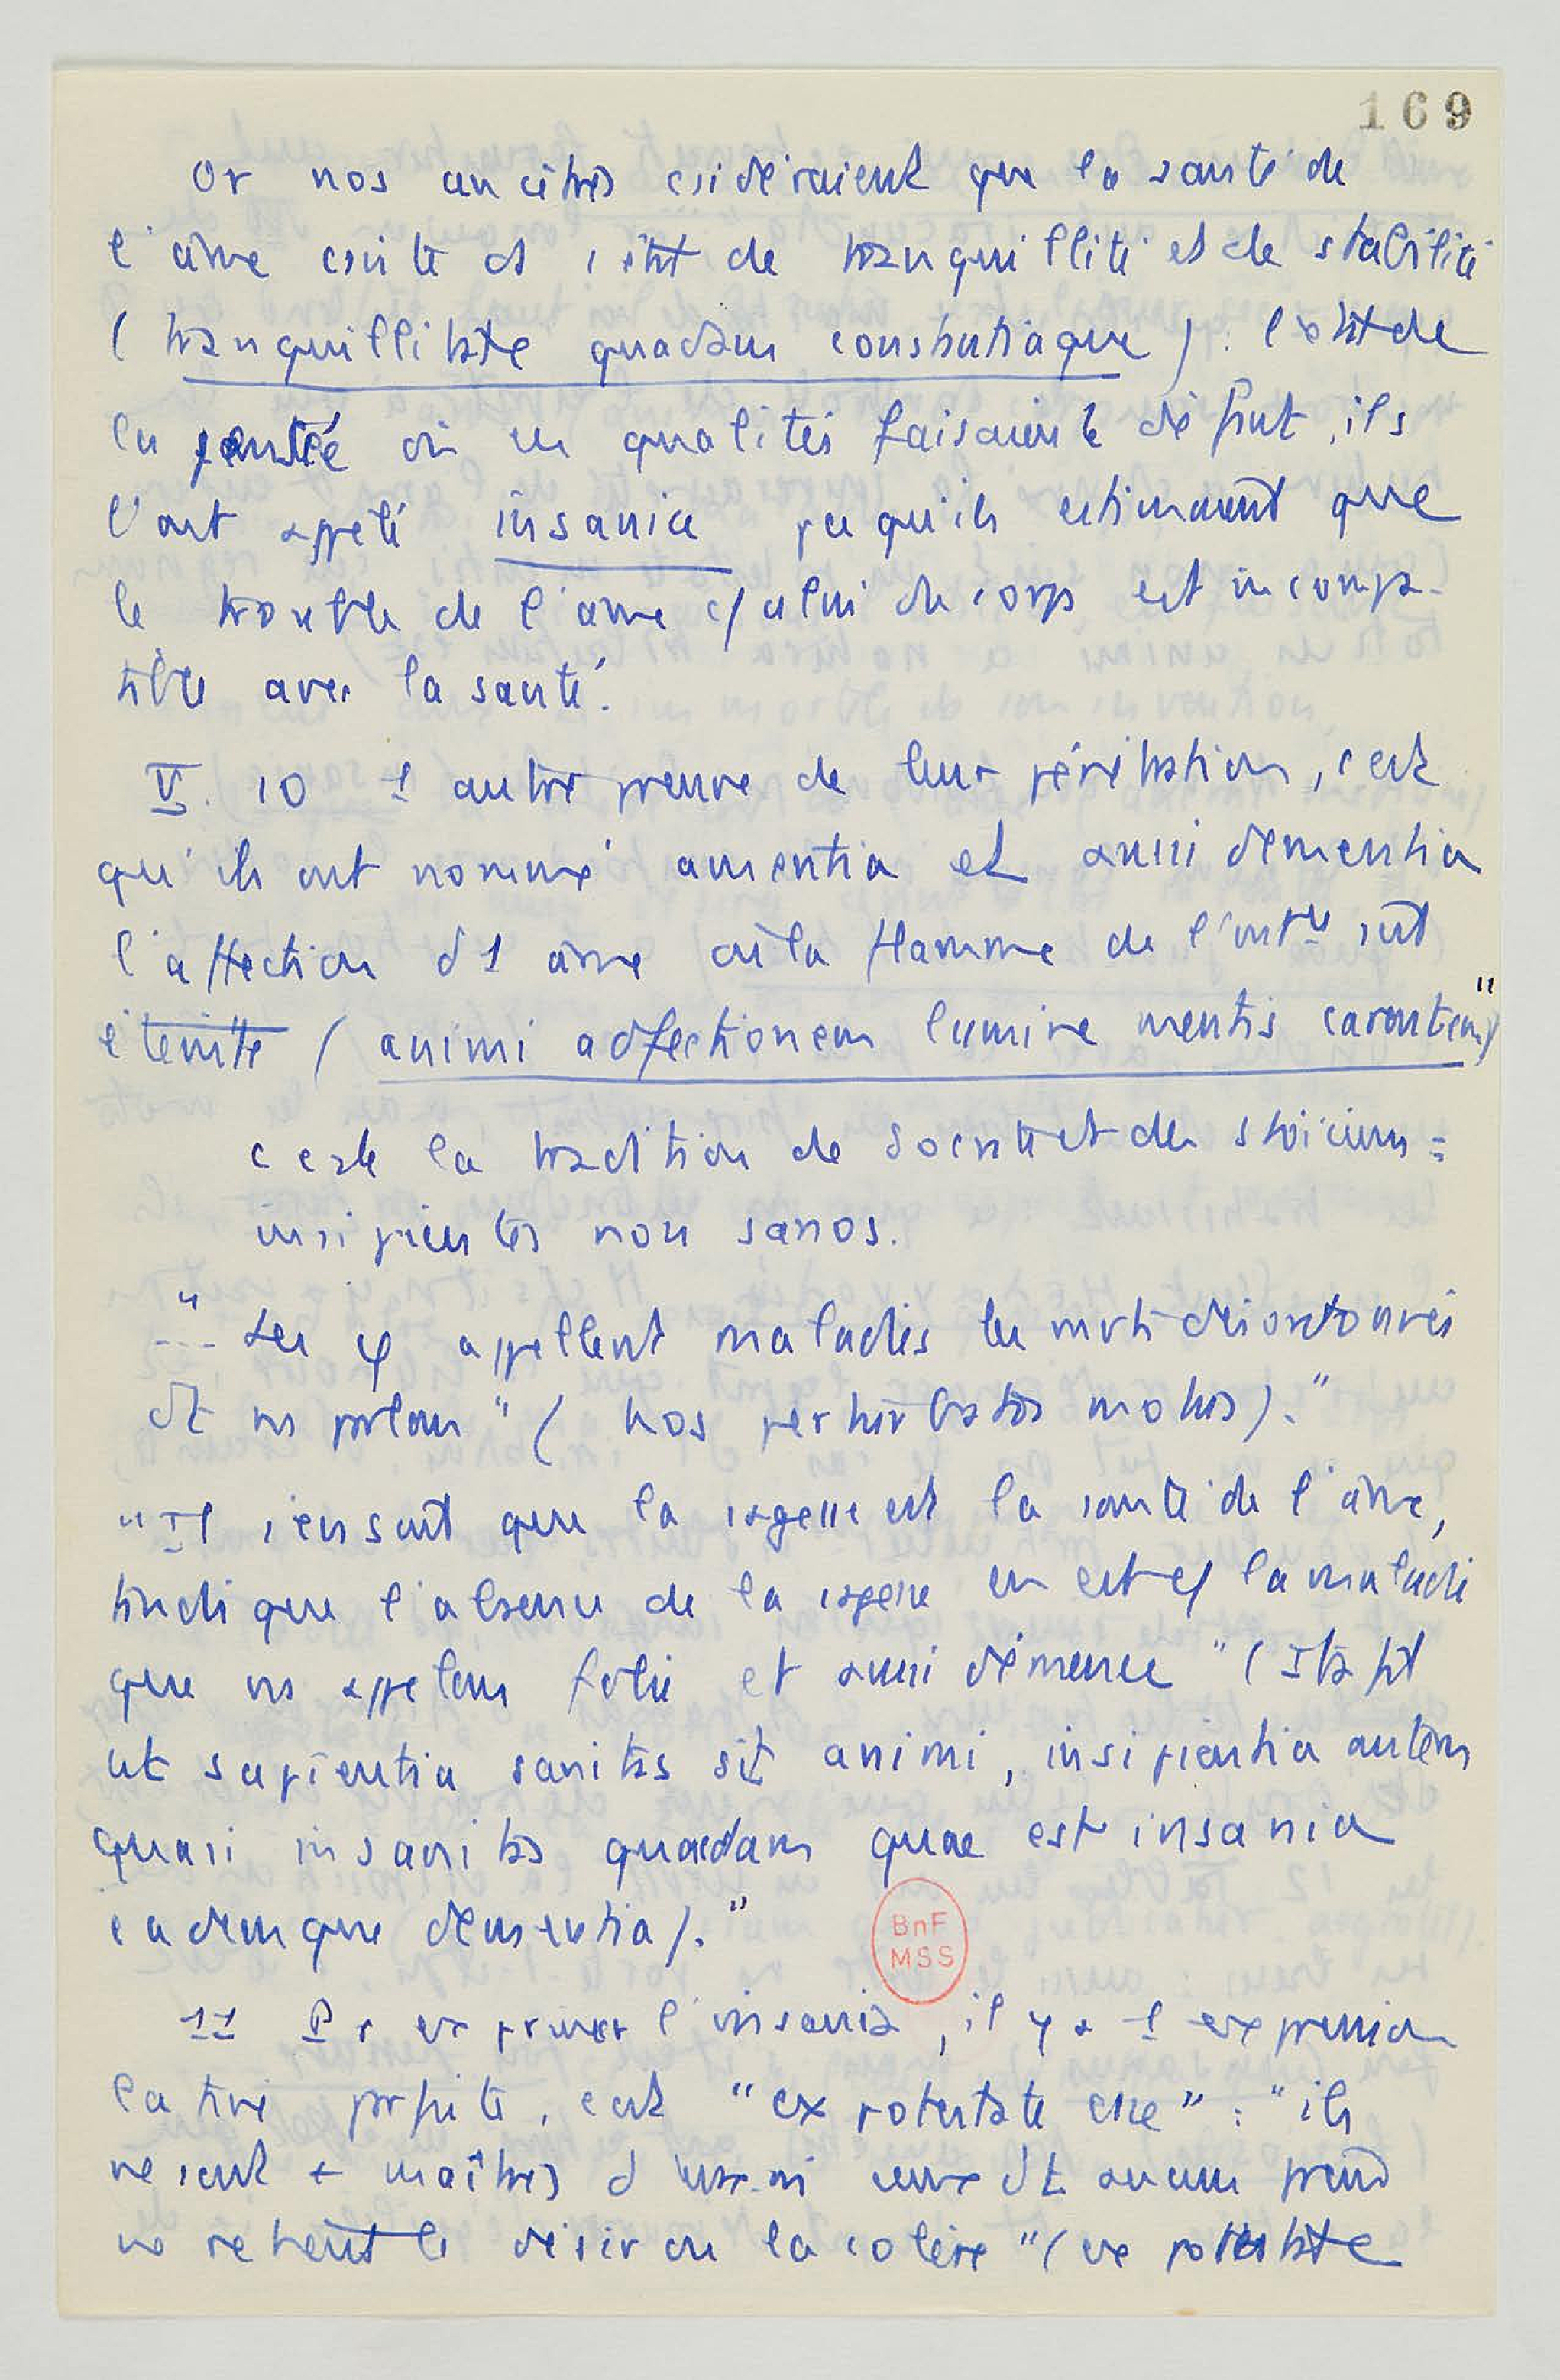 169
Or nos ancêtres csidéraient que la santé de
l'âme csiste ds 1 état de tranquillité et de stabilité
(tranquillitate quadam constantiaque) : l'état de
la pensée où ces qualités faisaient défaut, ils
l'ont appelé insania pcequ'ils estimaient que
le trouble de l'âme c/ celui du corps est incompa-
tible avec la santé.
V. 10 1 autre preuve de leur pénétration, c'est
qu'ils ont nommé amentia et aussi dementia
l'affection d'1 âme où la flamme de l'intce s'est
éteinte (animi adfectionem lumine mentis carentem)"
c'est la tradition de Socrate et des stoïciens :
insipientes non sanos.
"... Les φ appellent maladies les mvts désordonnés
dt ns parlons" (hos perturbatos motus)."
"Il s'ensuit que la sagesse est la santé de l'âme,
tandis que l'absence de la sagesse en est c/ la maladie
que ns appelons folie et aussi démence" (Ita fit
ut sapientia sanitas sit animi, insipientia autem
quasi insanitas quaedam quae est insania
eademque dementia)."
11 Pr exprimer l'insania, il y a 1 expression
latine parfaite, c'est "ex potestate esse" : "ils
ne sont + maîtres d'eux-mêmes ceux dt aucun frein
ne retient le désir ou la colère" (ex potestate
BnF
MSS